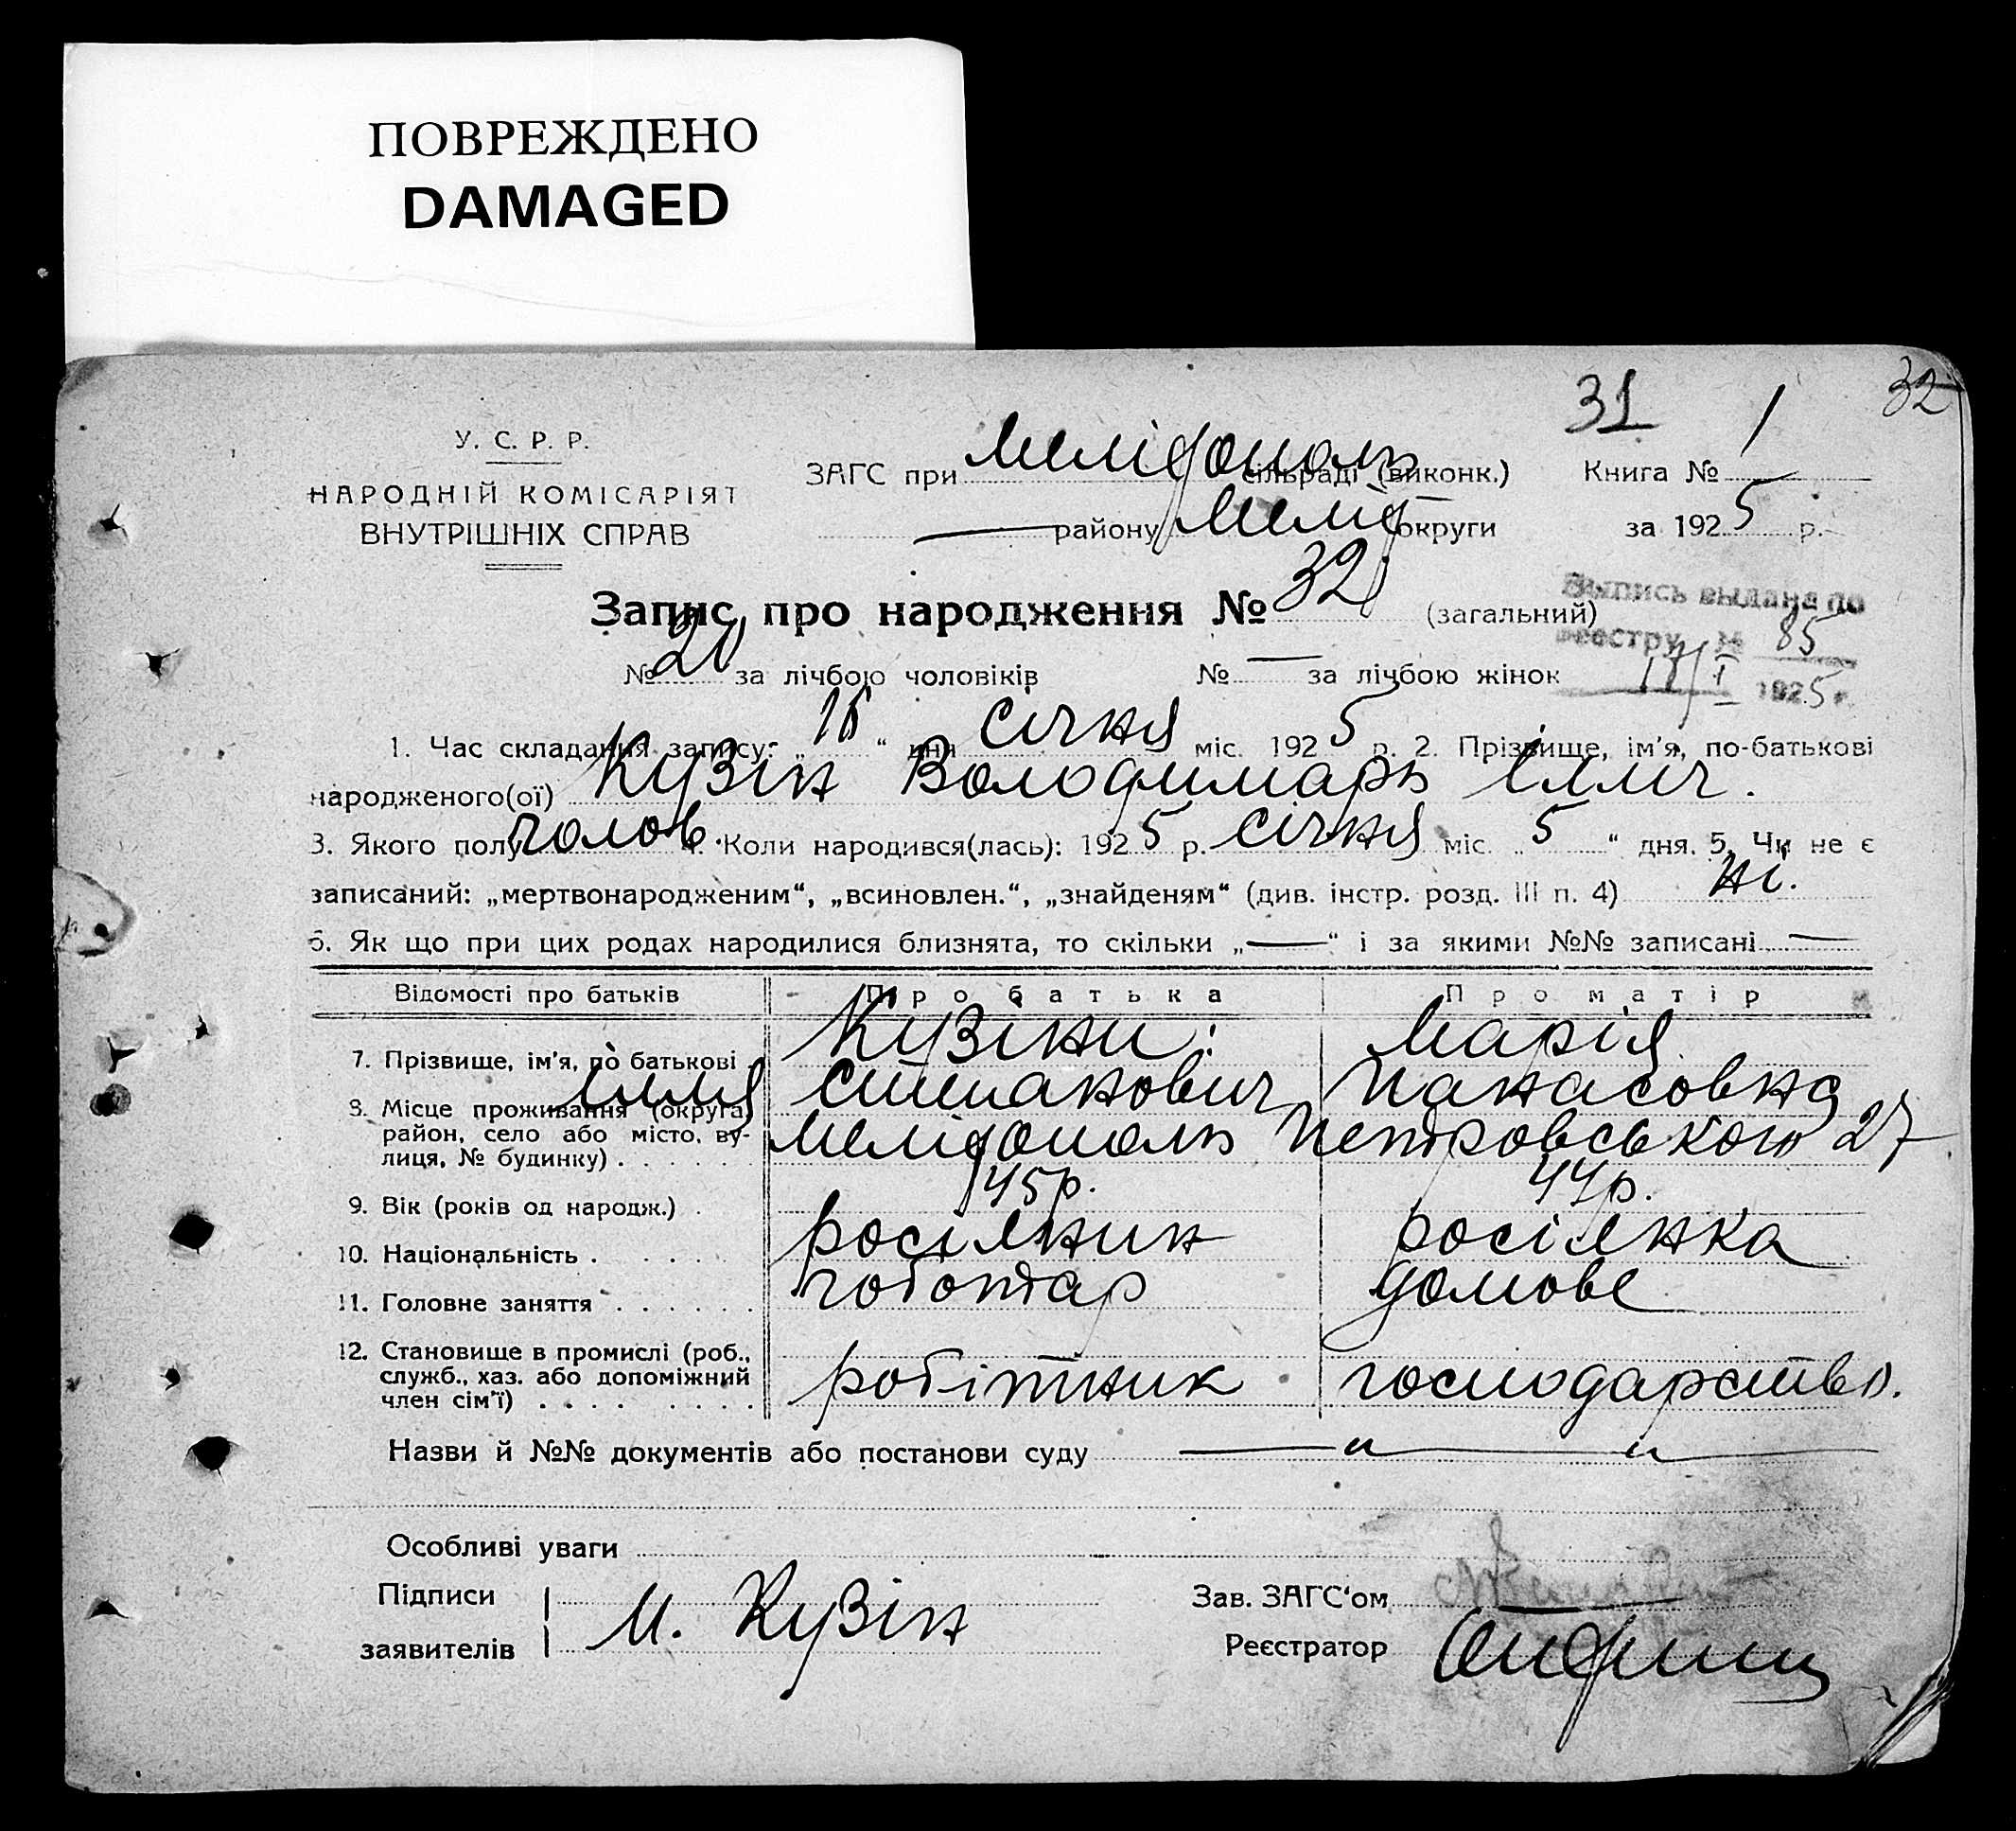 ПОВРЕЖДЕНО
DAMAGED
31 32
У. С. Р. Р.
НАРОДНІЙ КОМІСАРІЯТ
ВНУТРІШНІХ СПРАВ
ЗАГС при Мелітополь сільраді (виконк.) Книга № 1
— району Меліт округи за 1925 р.
Запис про народження № 32 (загальний)
Выпись выдана по
реестру № 85
17/I 1925 г.
№ 20 за лічбою чоловіків № — за лічбою жінок
1. Час складання запису: „16“ дня Січня міс. 1925 р. 2. Прізвище, ім'я, по-батькові
народженого(ої) Кузін Володимарь Ілліч.
3. Якого полу чолов. 4. Коли народився(лась): 1925 р. Січня міс. „5“ дня. 5. Чи не є
записаний: „мертвонародженим“, „всиновлен.“, „знайденям“ (див. інстр. розд. III п. 4) ні.
6. Як що при цих родах народилися близнята, то скільки „—“ і за якими №№ записані —
Відомості про батьків Про батька Про матір
7. Прізвище, ім'я, по батькові Кузіни: Марія
Ілля Степанович Панасовна
8. Місце проживання (округа, район, село або місто, вулиця, № будинку) . Мелітополь Петровською 27
9. Вік (років од народж.) . 45 р. 44 р.
10. Національність . росіянин росіянка
11. Головне заняття . чоботар домове
12. Становище в промислі (роб., служб., хаз. або допоміжний член сім'ї) . робітник господарство.
Назви й №№ документів або постанови суду — „ — „ —
Особливі уваги
Підписи
заявителів М. Кузін
Зав. ЗАГС'ом
Реєстратор